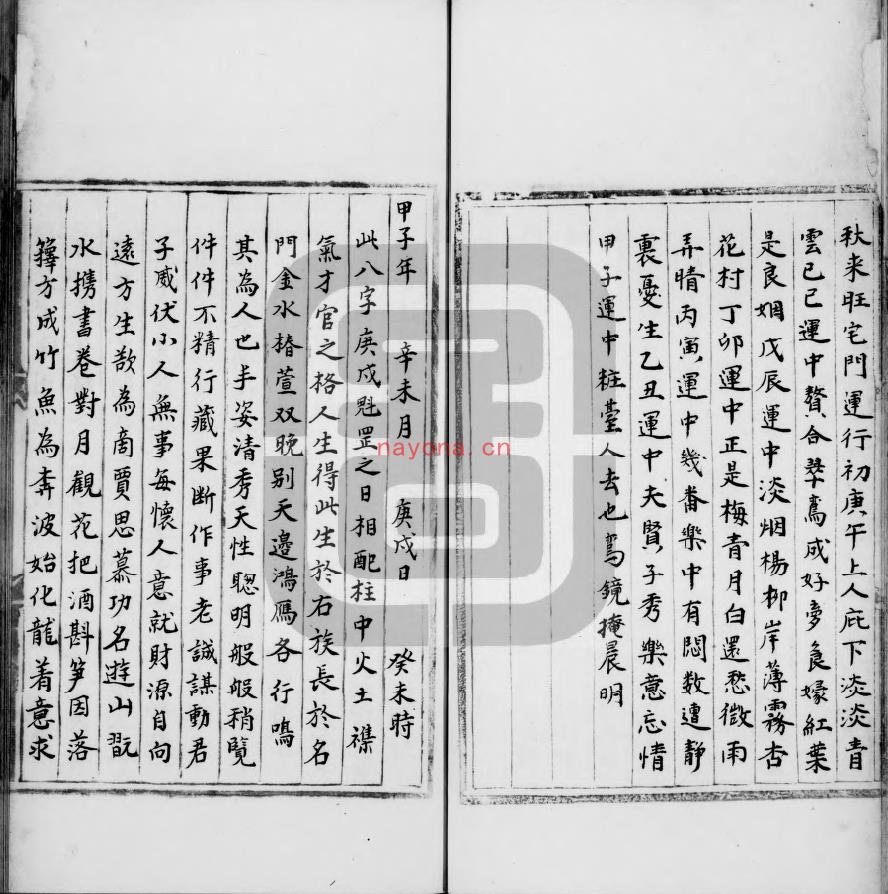 秋来旺宅門運行初庚午上人庇下淡淡青
雲己巳運中贅合孽鸞成好夢良嫁紅葉
是良姻戊辰運中淡烟楊柳岸薄霧杏
花村丁卯運中正是梅青月白還愁微雨
弄晴丙寅運中幾番樂中有悶数遭靜
裏憂生乙丑運中夫賢子秀樂意忘情
甲子運中粧臺人去也鸞鏡掩晨明
甲子年 辛未月 庚戌日 癸未時
此八字庚戌魁罡之日相配柱中火土襍
氣才官之格人生得此生於右族長於名
門金水椿萱双晚别天邊鴻鴈各行鳴
其為人也丰姿清秀天性聰明般般稍覽
件件不精行藏果斷作事老誠謀動君
子威伏小人無事每懷人意就財源自向
遠方生欲為啇賈思慕功名遊山翫
水携書卷對月觀花把酒斟笋因落
籜方成竹魚為奔波始化龍着意求
nayona.cn